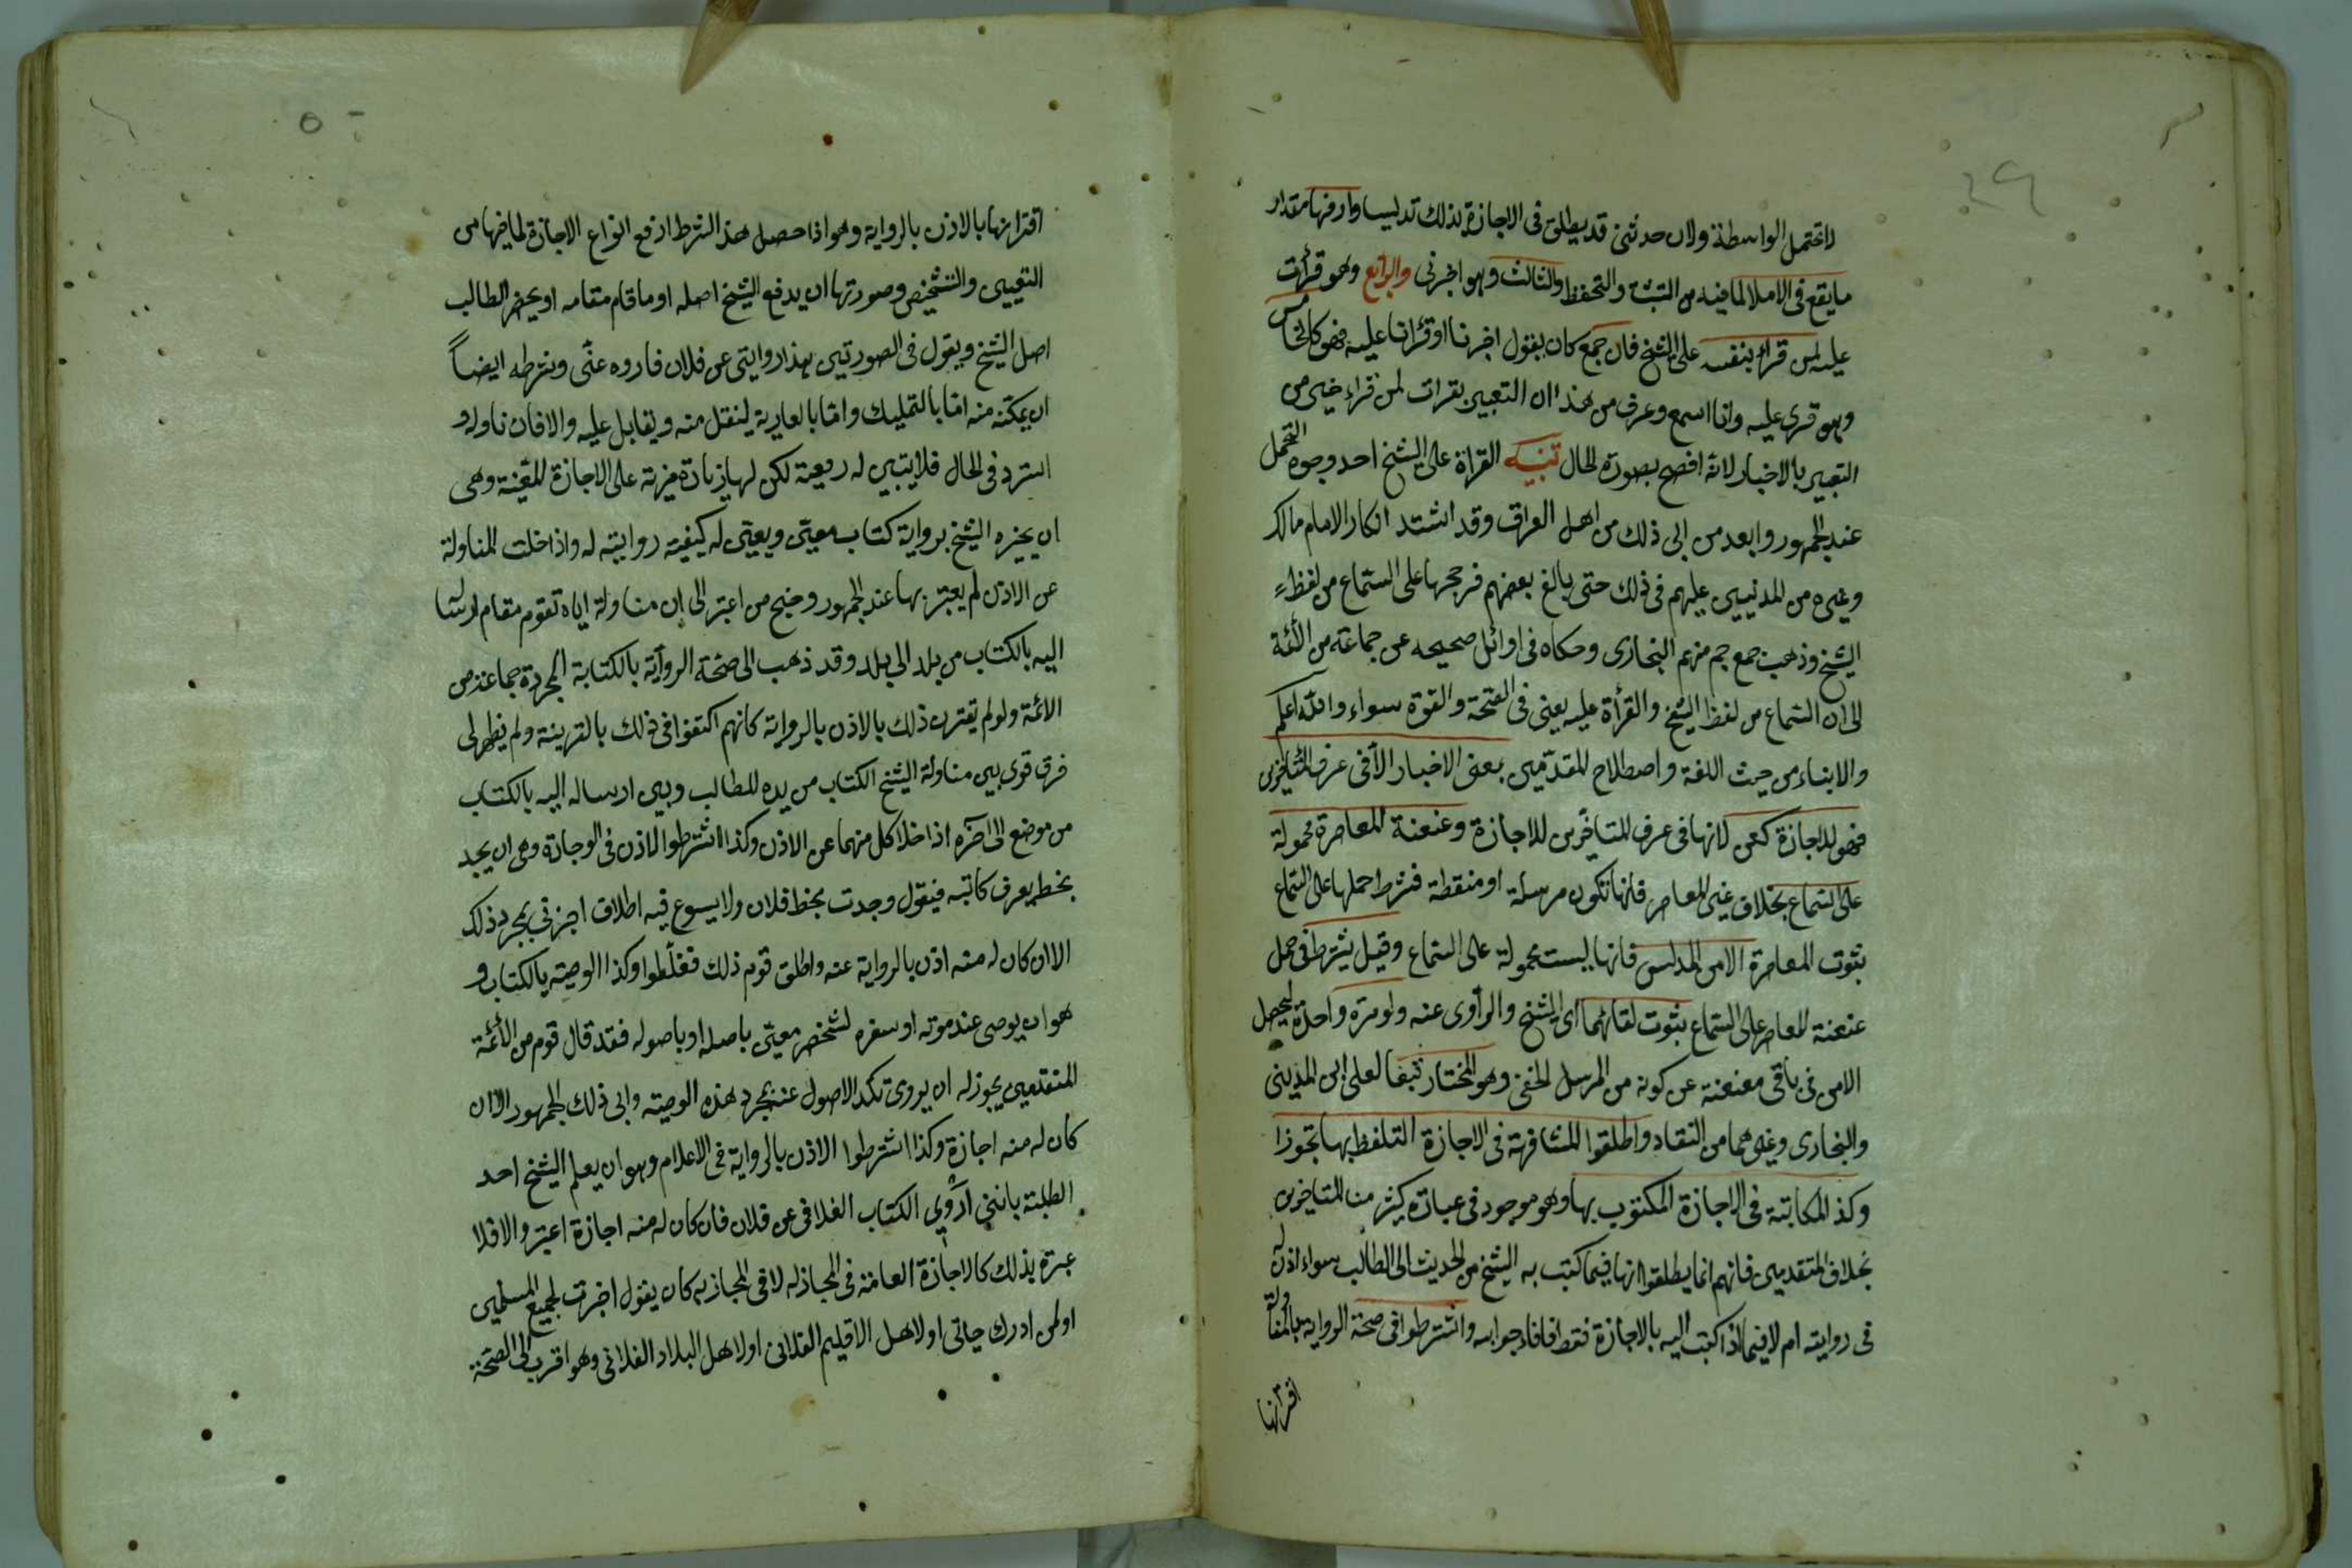 ٤٩
لا تحتمل الواسطة ولان حدثني قد يطلق في الاجازة لذلك تدليسا وارفعها مقدار
ما يقع في الاملا لما فيه من التثبت والتحفظ والثالث وهو اخبرني والرابع وهو قرأت
عليه لمن قرأ بنفسه على الشيخ فان جمع كان يقول اخبرنا او قرأنا عليه فهو كالخامس
وهو قرى عليه وانا اسمع وعرف من هذا ان التعبير بقرات لمن قراء خير من
التعبير بالاخبار لانه افصح بصورة الحال تنبيه القراة على الشيخ احد وجوه التحمل
عند الجمهور وابعد من ابى ذلك من اهل العراق وقد اشتد انكار الامام مالك
وغيره من المدنيين عليهم في ذلك حتى بالغ بعضهم فرجحها على السماع من لفظ
الشيخ وذهب جمع جم منهم البخارى وحكاه في اوائل صحيحه عن جماعة من الأئمة
الى ان السماع من لفظ الشيخ والقرأة عليه يعنى في الصحة والقوة سواء والله اعلم
والانباء من حيث اللغة واصطلاح المتقدمين بمعنى الاخبار الا في عرف المتأخرين
فهو للاجازة كعن لانها في عرف المتأخرين للاجازة وعنعنة المعاصرة محمولة
على السماع بخلاف غير المعاصر فانها تكون مرسلة او منقطة فشرط حملها على السماع
بثوت المعاصرة الا من المدلس فانها ليست محمولة على السماع وقيل يشترط في حمل
عنعنة المعاصر على السماع بثوت لقائهما اى الشيخ والرآوى عنه ولو مرة واحدة ليحصل
الامن في باقى معنعنة عن كونه من المرسل الخفى وهو المختار تبعا لعلى ابن المدينى
والبخارى وغيرهما من النقاد واطلقوا المشافهة في الاجازة التلفظ بها تجوزا
وكذا المكاتبة في الاجازة المكتوب بها وهو موجود في عبارة كثير من المتاخرين
بخلاف المتقدمين فانهم انما يطلقوانها فيما كتب به الشيخ من الحديث الى الطالب سواء اذن له
في روايته ام لا فيما اذا كتب اليه بالاجازة فقط افافاد جوابه واشترطوا في صحة الرواية بالمناولة
اقترانها
٥٠
اقترانها بالاذن بالرواية وهو اذا حصل هذا الشرط ارفع انواع الاجازة لما فيها من
التعيين والتشخيص وصورتها ان يدفع الشيخ اصله او ما قام مقامه او يحضر الطالب
اصل الشيخ ويقول في الصورتين هذا روايتى عن فلان فاروه عنّى وشرطه ايضاً
ان يمكنه منه امّا بالتمليك وامّا بالعارية لينقل منه ويقابل عليه والا فان ناوله و
استرد في الحال فلا يتبين له ريعية لكن لها زيادة مزية على الاجازة المعيّنة وهى
ان يجيزه الشيخ برواية كتاب معيّن ويعيّن له كيفية روايته له واذا خلت المناولة
عن الاذن لم يعتبر بها عند الجمهور وجنح من اعتبر الى ان مناولة اياه تقوم مقام ارسال
اليه بالكتاب من بلد الى بلد وقد ذهب الى صحة الروآية بالكتابة المجردة جماعة من
الائمة ولو لم تقترن ذلك بالاذن بالرواية كانهم اكتفوا في ذلك بالقرينة ولم يظهر لى
فرق قوى بين مناولة الشيخ الكتاب من يده للطالب وبين ارساله اليه بالكتاب
من موضع الى اخره اذا خلا كل منهما عن الاذن وكذا اشترطوا الاذن في الوجادة وهى ان يجد
بخط يعرف كاتبه فيقول وجدت بخط فلان ولا يسوع فيه اطلاق اخبرني بمجرد ذلك
الا ان كان له منه اذن بالرواية عنه واطلق قوم ذلك فغلّطوا وكذا الوصية بالكتاب و
هو ان يوصى عند موته او سفره لشخص معيّن باصله او باصوله فقد قال قوم من الأئمة
المتقدمين يجوز له ان يروى تلك الاصول عنه بمجرد هذه الوصية وابى ذلك الجمهور الا ان
كان له منه اجازة وكذا اشترطوا الاذن بالرواية في الاعلام وهو ان يعلم الشيخ احد
الطلبة باننى اروي الكتاب الفلانى عن فلان فان كان له منه اجازة اعتبر والا فلا
عبرة بذلك كالاجازة العامة في المجاز له لا في المجاز به كان يقول اخبرت لجميع المسلمين
او لمن ادرك حياتى او لاهل الاقليم الفلانى او لاهل البلاد الفلانى وهو اقرب الى الصحة